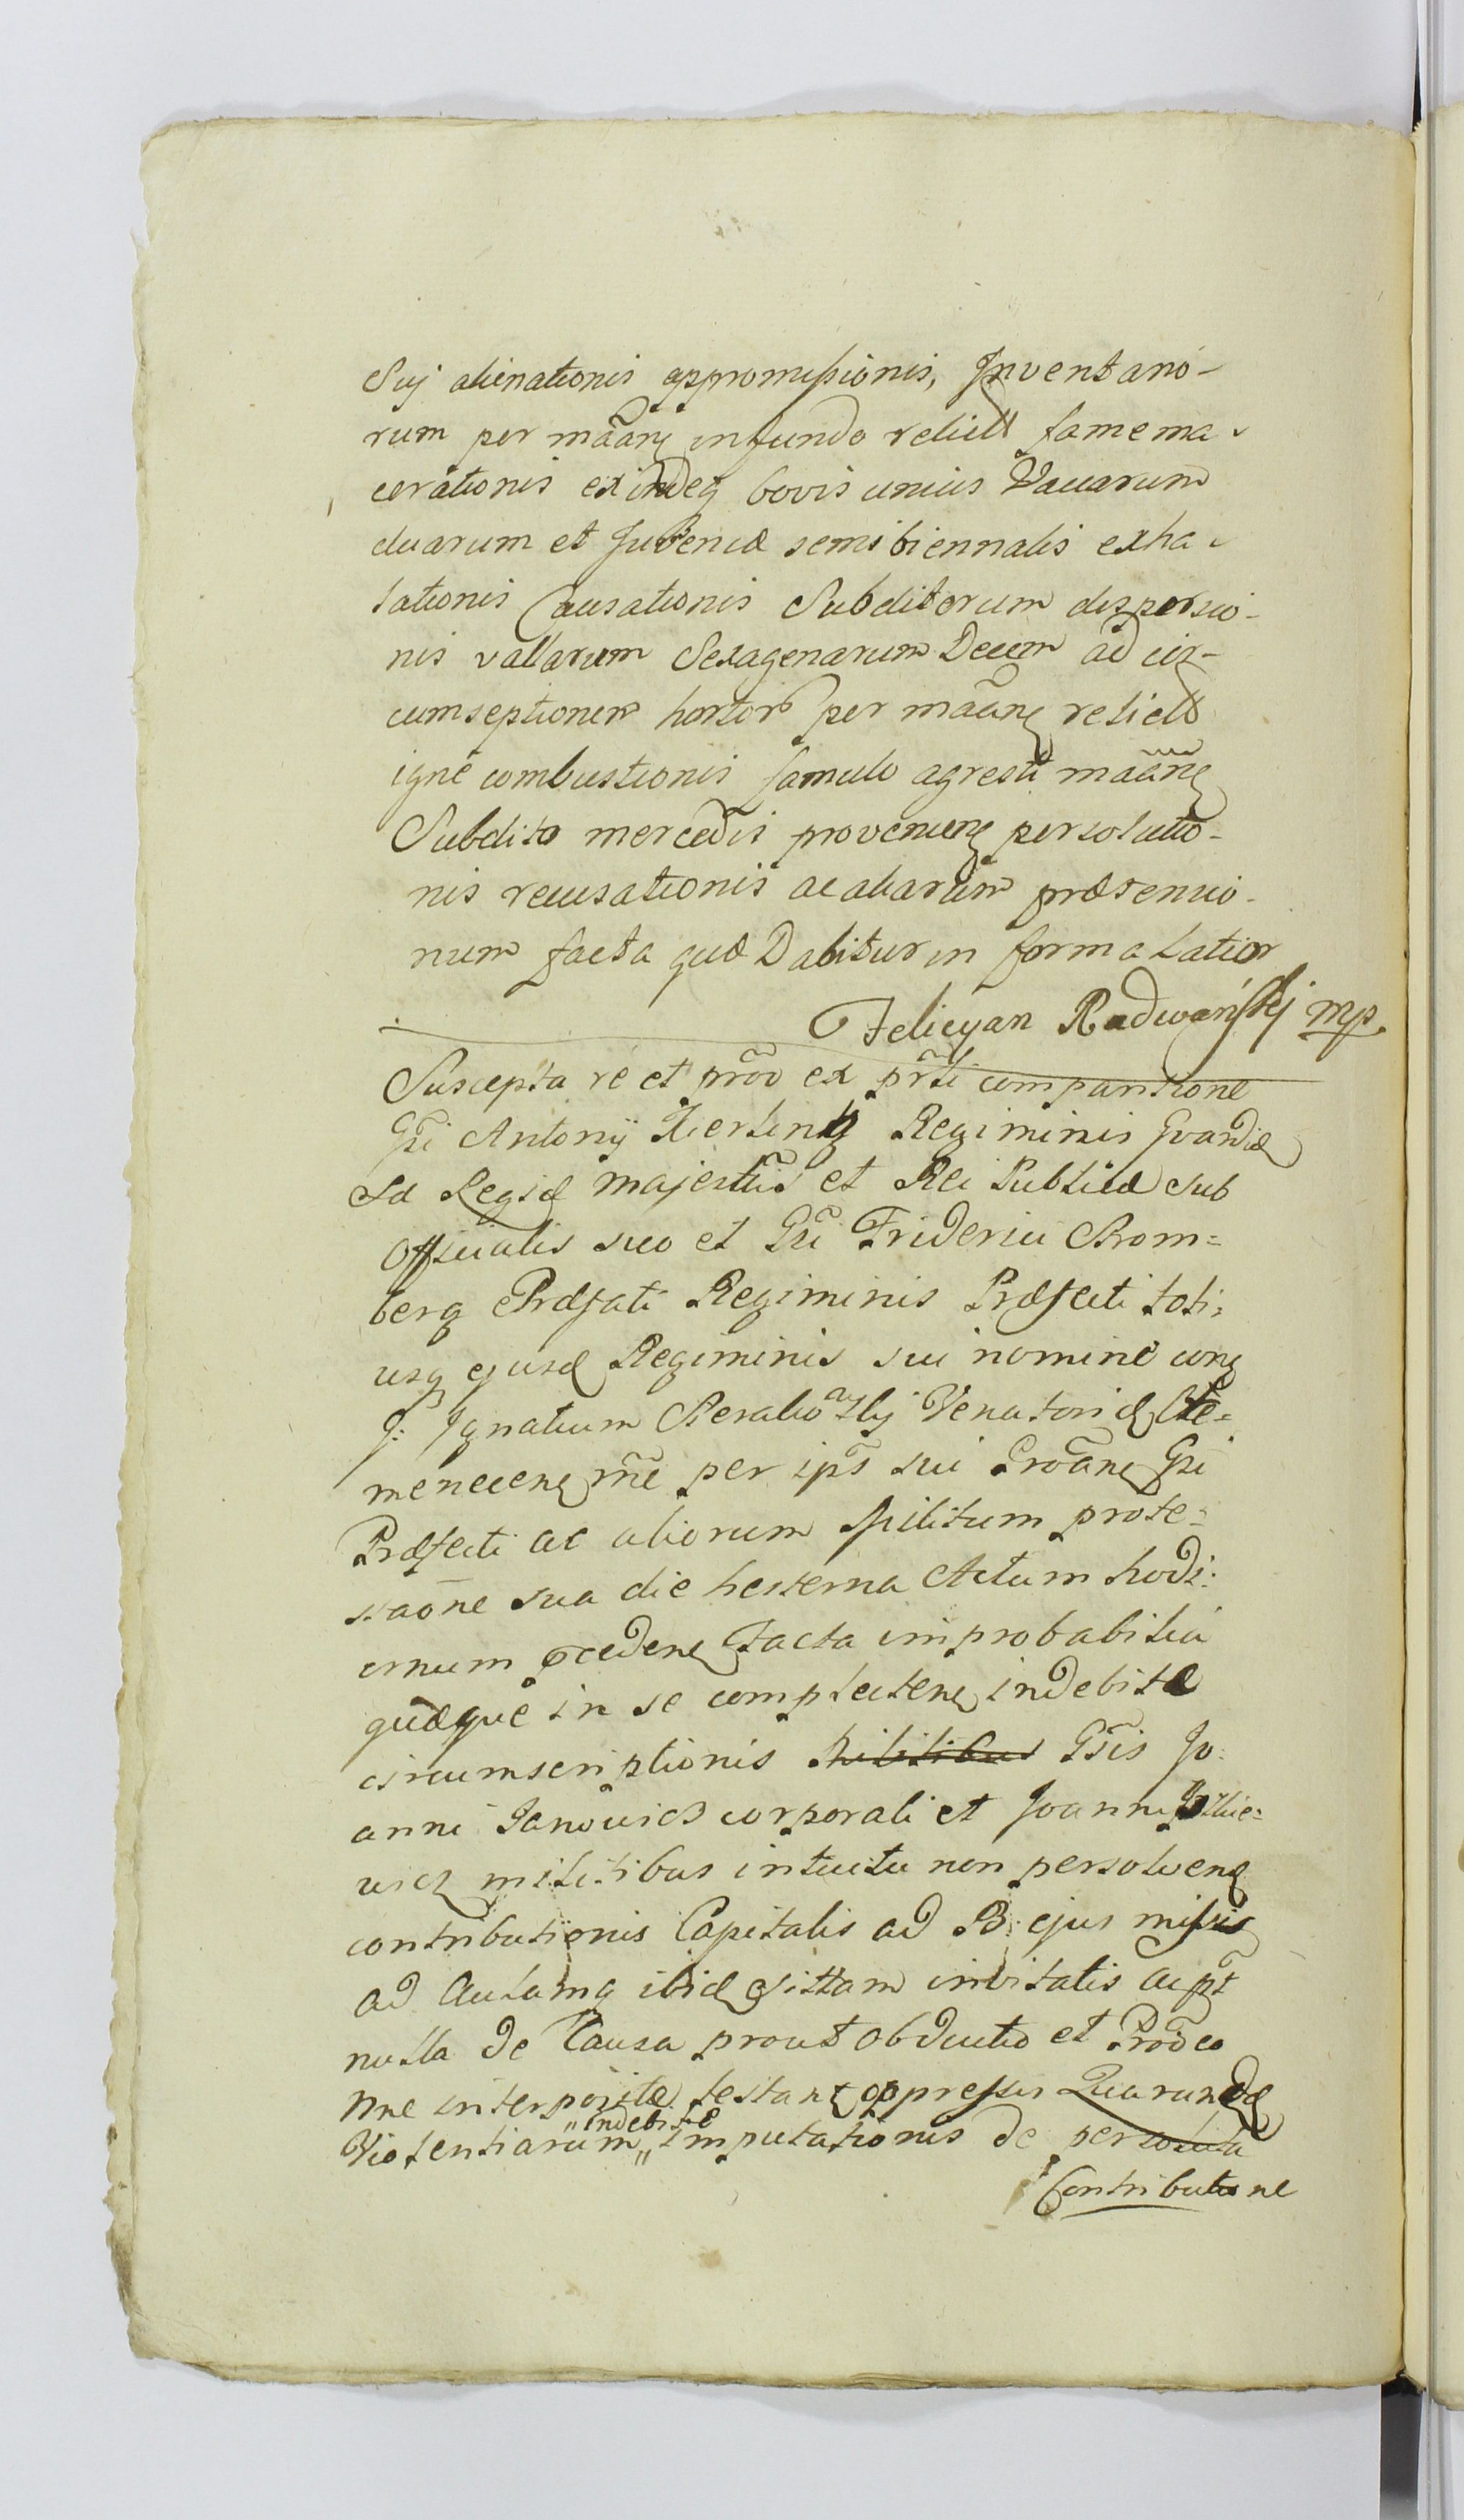 Suj alienationis appromissionis, Inventario-
rum per mãñę in fundo relict famema-
cerationis exindeq bovis unius Vaccarum
duarum et Juvencæ semibiennalis exha-
lationis Causationis Subditorum dispersio-
nis vallarum Sexagenarum Decem ad cir-
cumseptionem hortor per mãnę relict
igne combustionis famulo agresti mãnę
Subdito mercedis provenienę persolutio-
nis recusationis ac aliarum prætensio-
num facta quæ Dabitur in forma Latior
Felicyan Radwański mp.
Suscepta re et prõo ex prti comparitione
Gsi Antonij Kierling Regiminis Gvardiæ
Sæ Regiæ Majestis et Rei Publicæ sub
Officialis suo et Gsi Friderici Krom=
berg Præfati Regiminis Præfecti toti=
usq ejusd Regiminis sui nomine conę
G: Ignatium Venatoridę
menecenę rñe per ips sui Gsi
Præfecti ac aliorum Militum prote=
staõne sua die hesterna Actum hodi:
ernum præcedenę facta improbabilia
quæque in se complectenę indebitæ
circumscriptionis Militibus Gsis Jo:
anni Janowicz corporali et Joanni
wicz militibus intuitu non persolvenę
contributionis Capitalis ad B: ejus missis
ad Aulamq ibidę sittam invitatis ac pt
nulla de Causa prout obductio et Proõeo
nne interpositæ testantę oppressis Quarundę
Violentiarum „indebitæ„ imputationis de persoluta
Contributione